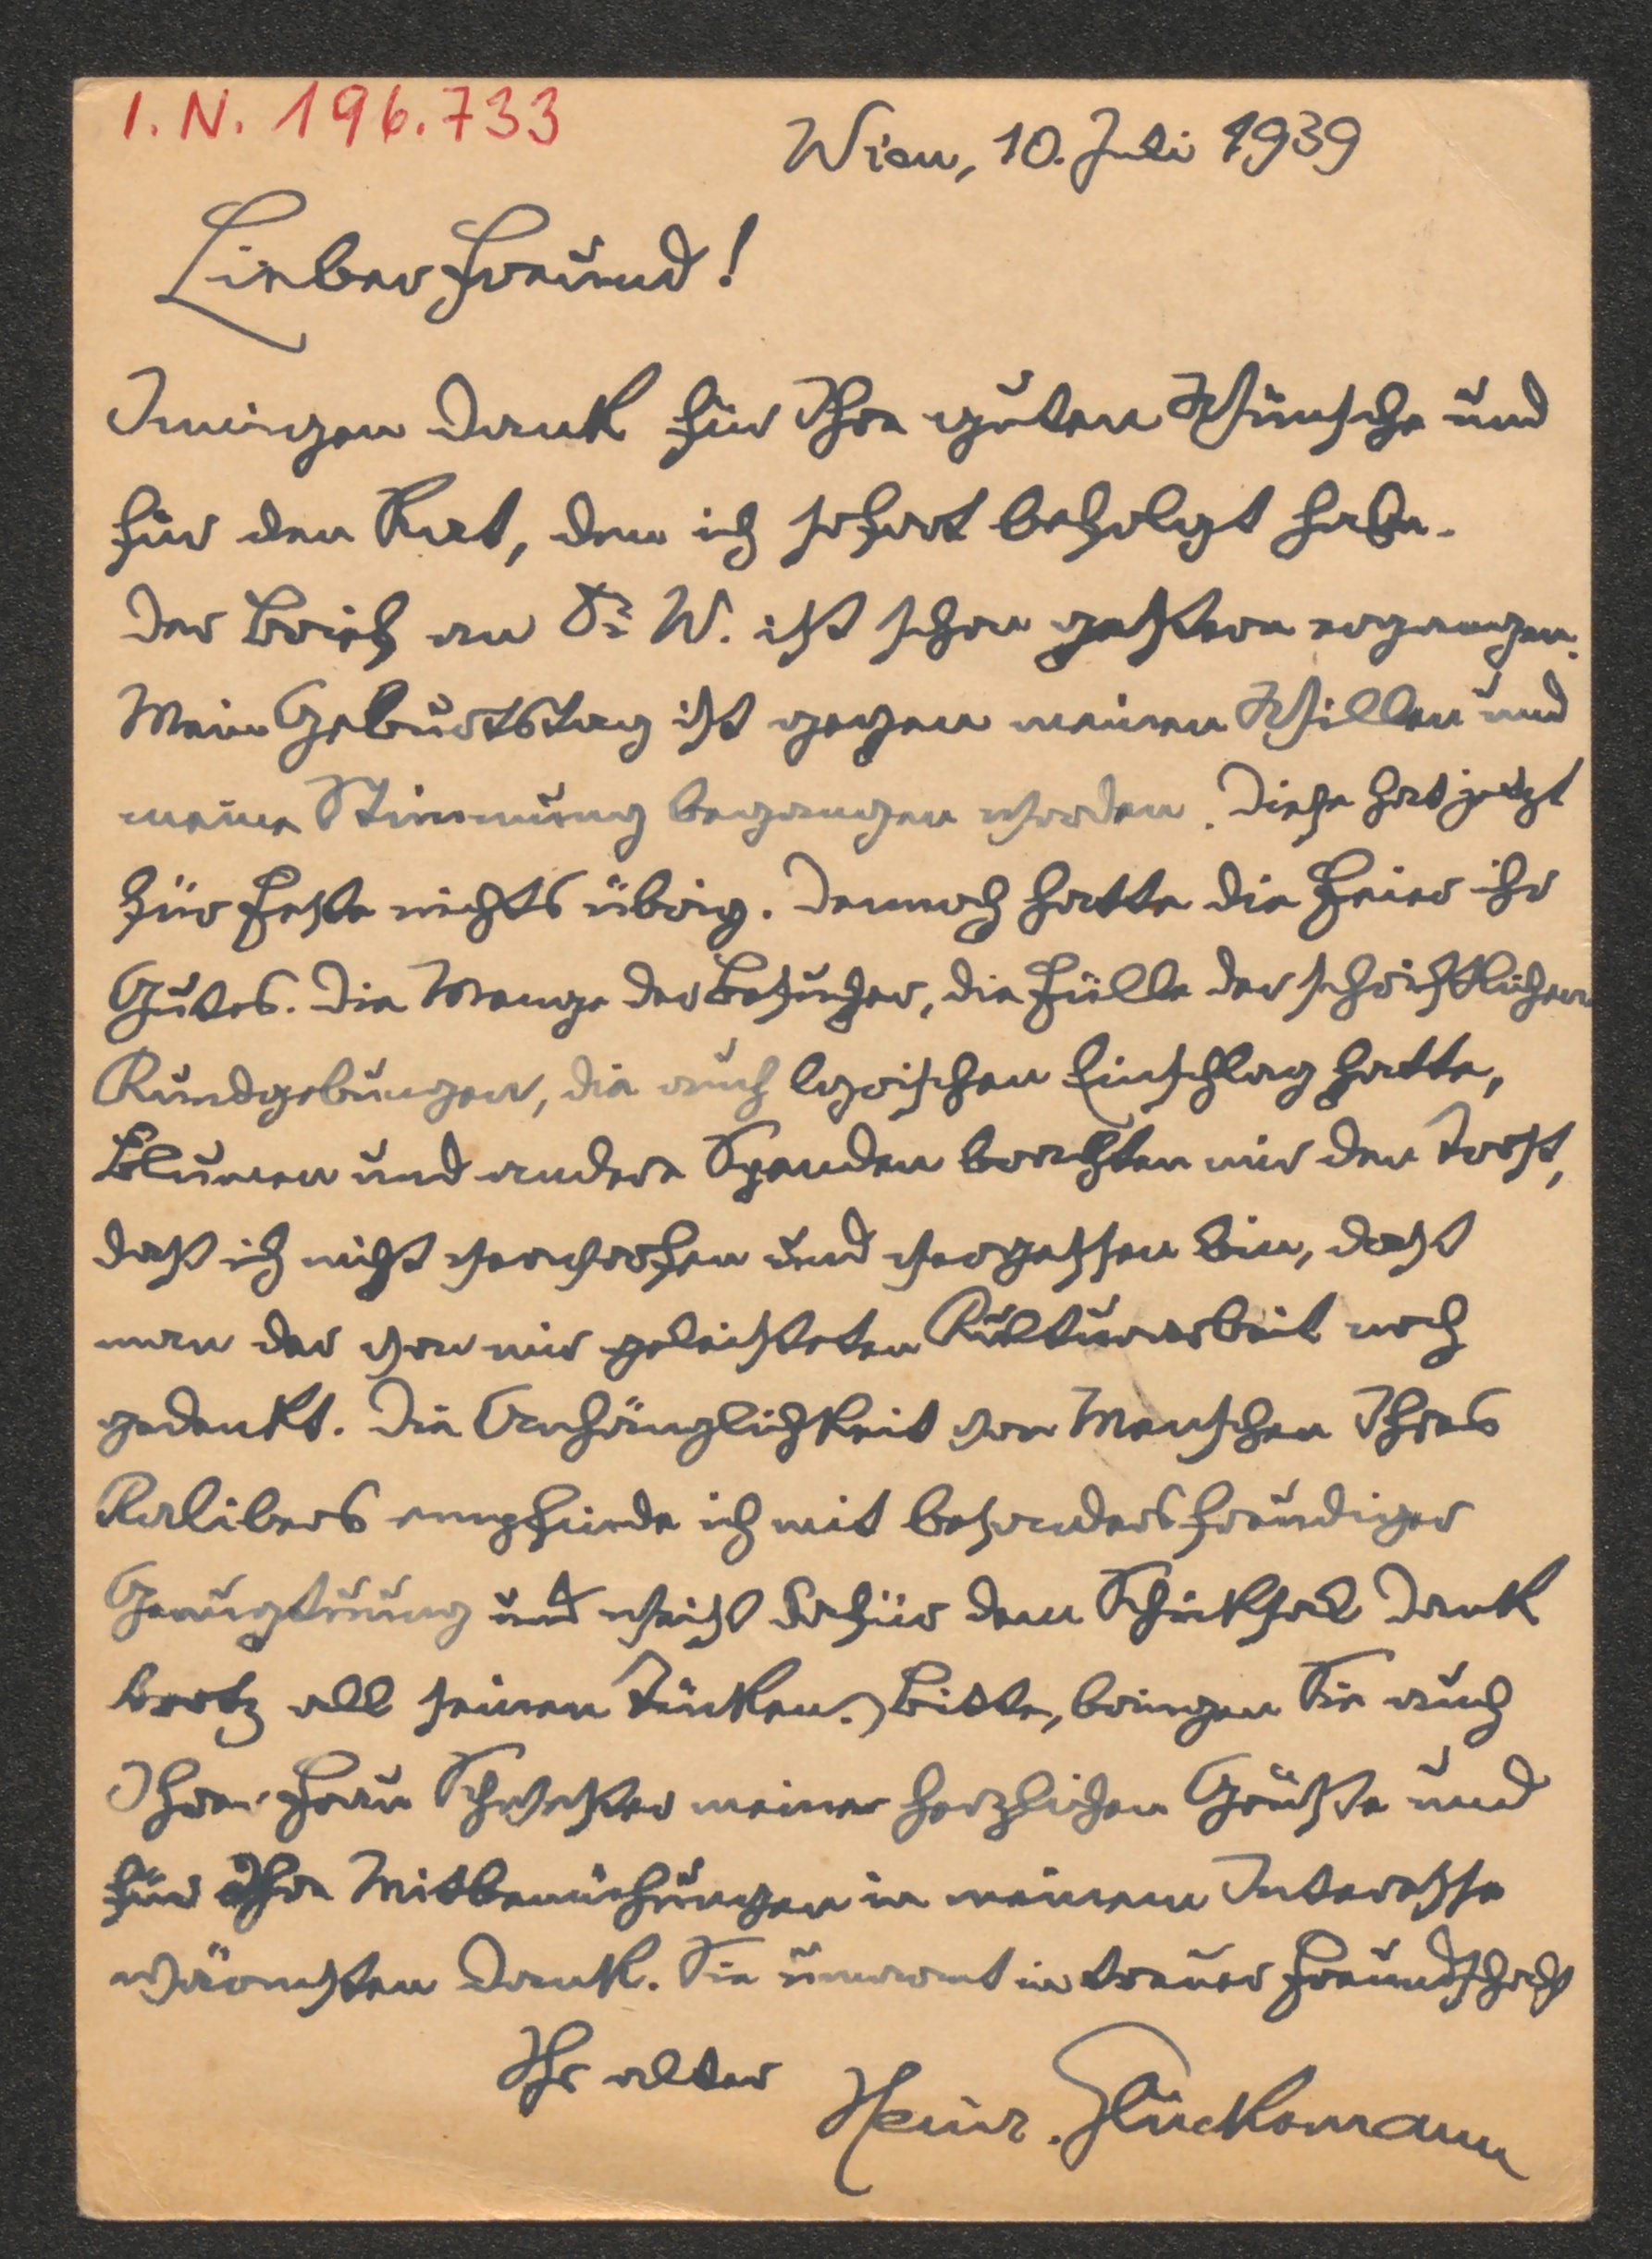 I.N. 196.733
Wien, 10. Juli 1939
Lieber Freund!
Innigen Dank für Ihre guten Wünsche und
für den Rat, dem ich sofort befolgt habe.
Der Brief an Dr. W. ist schon gestern ergangen.
Mein Geburtstag ist gegen meinen Willen und
meine Stimmung begangen worden. Diese hat jetzt
für Feste nichts übrig. Dennoch hatte die Feier ihr
Gutes. Die Menge der Besucher, die Fülle der schriftlichen
Kundgebungen, die auch lyrischen Einschlag hatte,
Blumen und andere Spenden brachten mir den Trost,
daß ich nicht verworfen und vergessen bin, daß
man der von mir geleisteten Kulturarbeit noch
gedenkt. Die Anhänglichkeit von Menschen Ihres
Kalibers empfinde ich mit besonders freudiger
Genugtuung und weiß dafür dem Schicksal Dank
trotz all seinen Tücken. Bitte, bringen Sie auch
Ihrer Frau Schwester meine herzlichen Grüße und
für Ihre Mitbemühungen in meinem Interesse
wärmsten Dank. Sie umarmt in treuer Freundschaft
Ihr alter
Heinr. Glücksmann